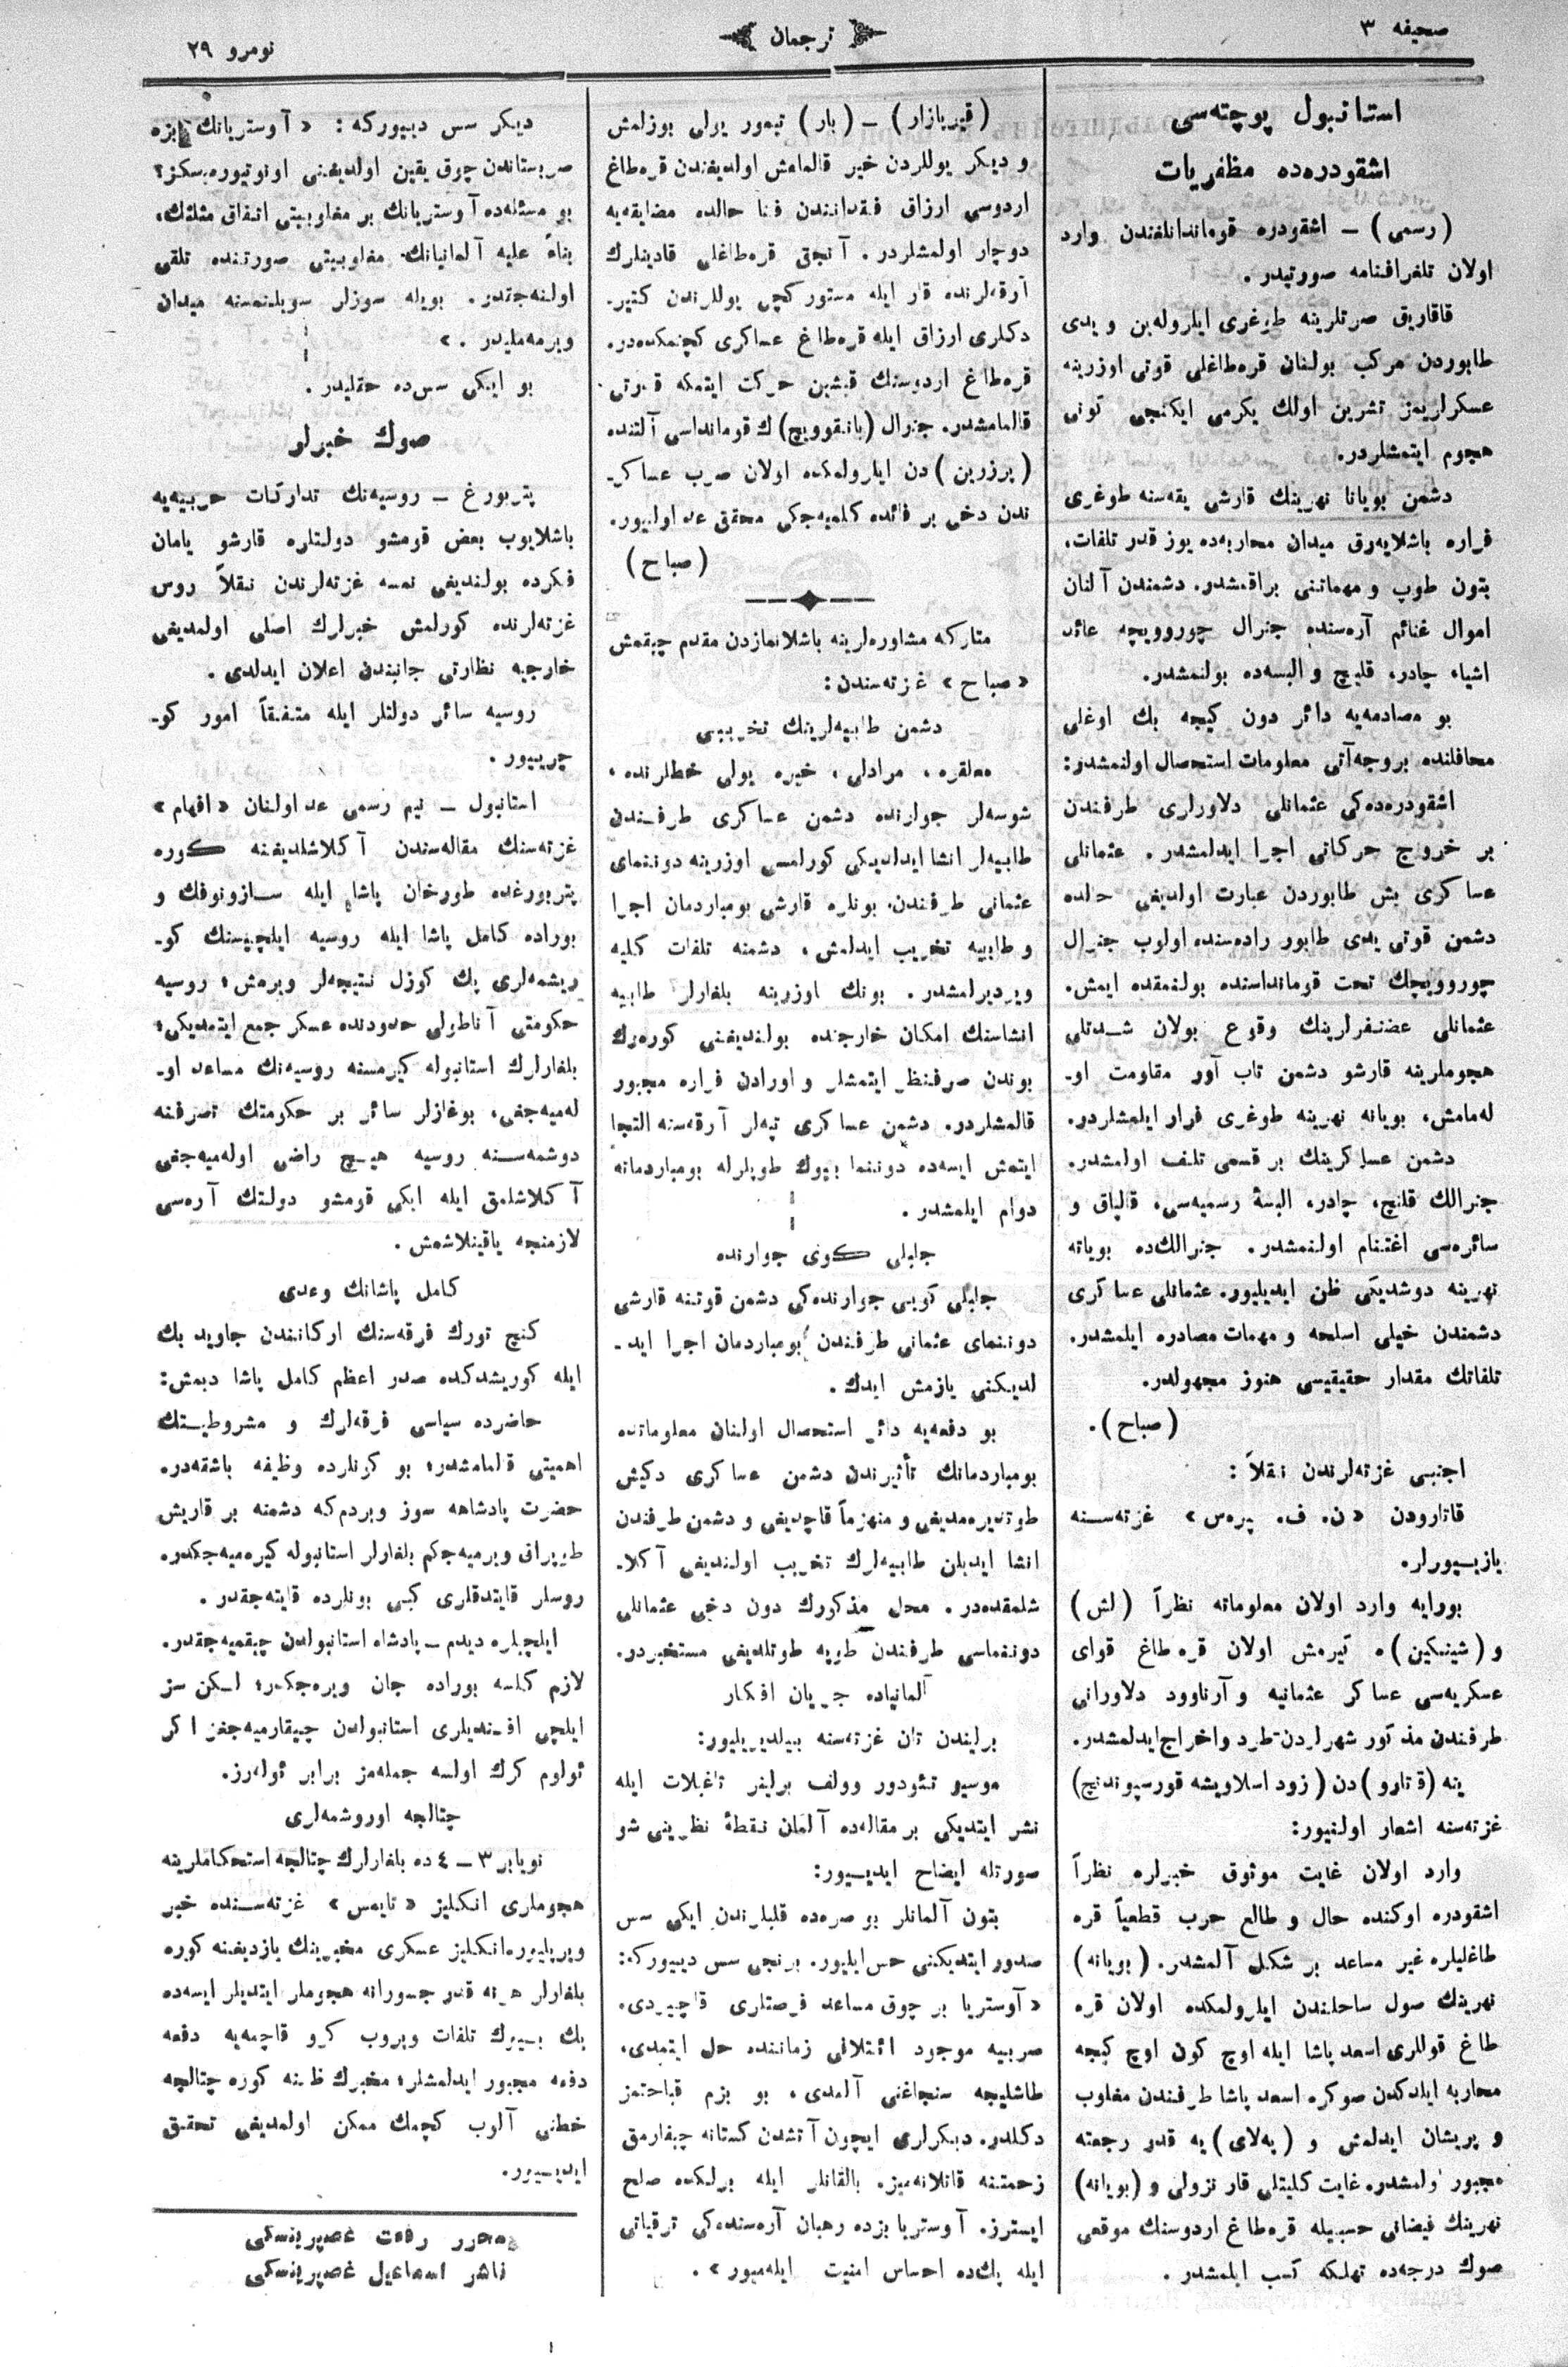 صحیفه ۳
ترجمان
نومرو ۲۹
استانبول پوچته‌سی
اشقودره‌ده مظفریات
(رسمی) ــ اشقودره قوماندانلغندن وارد
اولان تلغرافنامه صورتیدر .
قاقاریق صرتلرینه طوغری ایلروله‌ین و یدی
طابوردن مرکب بولنان قره‌طاغلی قوتی اوزرینه
عسکرلریمز تشرین اولك یکرمی ایکنجی کونی
هجوم ایتمشلردر.
دشمن بویانا نهرینك قارشی یقه‌سنه طوغری
فراره باشلایه‌رق میدان محاربه‌ده یوز قدر تلفات،
بتون طوپ و مهماتنی براقمشدر. دشمندن آلنان
اموال غنائم آره‌سنده جنرال چوروویچه عائد
اشیاء چادر، قلیچ و البسه‌ده بولنمشدر.
بو مصادمه‌یه دائر دون کیجه بك اوغلی
محافلنده بروجه‌آتی معلومات استحصال اولنمشدر:
اشقودره‌ده‌کی عثمانلی دلاورلری طرفندن
بر خروج حرکاتی اجرا ایدلمشدر . عثمانلی
عساکری بش طابوردن عبارت اولدیغی حالده
دشمن قوتی یدی طابور راده‌سنده اولوب جنرال
چوروویچك تحت قومانداسنده بولنمقده ایمش.
عثمانلی غضنفرلرینك وقوع بولان شدتلی
هجوملرینه قارشو دشمن تاب آور مقاومت او‌ـ
له‌مامش، بویانه نهرینه طوغری فرار ایلمشلردر.
دشمن عساکرینك بر قسمی تلف اولمشدر.
جنرالك قلنچ، چادر، البسهٔ رسمیه‌سی، قالپاق و
سائره‌سی اغتنام اولنمشدر. جنرالك‌ده بویانه
نهرینه دوشدیکی ظن ایدیلیور. عثمانلی عساکری
دشمندن خیلی اسلحه و مهمات مصادره ایلمشدر.
تلفاتك مقدار حقیقیسی هنوز مجهولدر.
(صباح).
اجنبی غزته‌لرندن نقلاً :
قاتارودن «ن. ف. پره‌س» غزته‌سنه
یازییورلر.
بورایه وارد اولان معلوماته نظراً (لش)
و (شینکین)ه کیرمش اولان قره‌طاغ قوای
عسکریه‌سی عساکر عثمانیه و آرناوود دلاورانی
طرفندن مذکور شهرلردن طرد و اخراج ایدلمشدر.
ینه (قتارو)دن (زود اسلاویشه قورسپوندنچ)
غزته‌سنه اشعار اولنیور:
وارد اولان غایت موثوق خبرلره نظراً
اشقودره اوکنده حال و طالع حرب قطعیاً قره
طاغلیلره غیر مساعد بر شکل آلمشدر. (بویانه)
نهرینك صول ساحلندن ایلرولمکده اولان قره
طاغ قوللری اسعد پاشا ایله اوچ کون اوچ کیجه
محاربه ایلدکدن صوکره اسعد پاشا طرفندن مغلوب
و پریشان ایدلمش و (په‌لای) یه قدر رجعته
مجبور اولمشدر. غایت کلیتلی قار نزولی و (بویانه)
نهرینك فیضانی حسبیله قره‌طاغ اردوسنك موقعی
صوك درجه‌ده تهلکه کسب ایلمشدر .
(قیربازار) ــ (بار) تیمور یولی بوزلمش
و دیکر یوللردن خیر قالمامش اولدیغندن قره‌طاغ
اردوسی ارزاق فقدانندن فنا حالده مضایقه‌یه
دوچار اولمشلردر. آنجق قره‌طاغلی قادینلرك
آرقه‌لرنده قار ایله مستور کچی یوللرندن کتیرـ
دکلری ارزاق ایله قره‌طاغ عساکری کچنمکده‌در.
قره‌طاغ اردوسنك قیشین حرکت ایتمکه قدرتی
قالمامشدر. جنرال (یانقوویچ)ك قومانداسی آلتنده
(پرزرین)دن ایلرولمکده اولان صرب عساکرـ
ندن دخی بر فائده کلمیه‌جکی محقق عد اولنیور.
(صباح)
متارکه مشاوره‌لرینه باشلانمازدن مقدم چیقمش
«صباح» غزته‌سندن:
دشمن طابیه‌لرینك تخریبی
معلقره، مرادلی، خیره بولی خطلرنده،
شوسه‌لر جوارنده دشمن عساکری طرفندن
طابیه‌لر انشا ایدلدیکی کورلمسی اوزرینه دوننمای
عثمانی طرفندن بونلره قارشی بومباردمان اجرا
و طابیه تخریب ایدلمش، دشمنه تلفات کلیه
ویردیرلمشدر. بونك اوزرینه بلغارلر طابیه
انشاسنك امکان خارجنده بولندیغنی کوره‌رك
بوندن صرفنظر ایتمشلر و اورادن فراره مجبور
قالمشلردر. دشمن عساکری تپه‌لر آرقه‌سنه التجا
ایتمش ایسه‌ده دوننما بیوك طوپلرله بومباردمانه
دوام ایلمشدر .
جلیلی کوی جوارنده
جلیلی کویی جوارنده‌کی دشمن قوتنه قارشی
دوننمای عثمانی طرفندن بومباردمان اجرا ایدـ
لدیکنی یازمش ایدك.
بو دفعه‌یه دائر استحصال اولنان معلوماتده
بومباردمانك تأثیرندن دشمن عساکری دکیش
طوتدیره‌مدیغی و منهزماً قاچدیغی و دشمن طرفندن
انشا ایدیلن طابیه‌لرك تخریب اولندیغی آکلاـ
شلمقده‌در. محل مذکورك دون دخی عثمانلی
دوننماسی طرفندن طوپه طوتلدیغی مستخبردر.
آلمانیاده جریان افکار
برلیندن تان غزته‌سنه بیلدیریلیور:
موسیو تئودور وولف برلینر تاغبلات ایله
نشر ایتدیکی بر مقاله‌ده آلمان نقطهٔ نظرینی شو
صورتله ایضاح ایدییور:
بتون آلمانلر بو صره‌ده قلبلرندن ایکی سس
صدور ایتدیکنی حس ایلیور. برنجی سس دییورکه:
«آوستریا بر چوق مساعد فرصتلری قاچیردی،
صربیه موجود ائتلافی زماننده حل ایتمدی،
طاشلیجه سنجاغنی آلمدی، بو بزم قباحتمز
دکلدر. دیکرلری ایچون آتشدن کستانه چیقارمق
زحمتنه قاتلانه‌میز. بالقانلر ایله برلکده صلح
ایسترز. آوستریا بزده رهبان آره‌سنده‌کی ترقیاتی
ایله پك‌ده احساس امنیت ایله‌میور» .
دیکر سس دییورکه: «آوستریانك بزه
صربستاندن چوق یقین اولدیغنی اونوتیورمیسکز؟
بو مسئله‌ده آوستریانك بر مغلوبیتی اتفاق مثلثك،
بناءً علیه آلمانیانك مغلوبیتی صورتنده تلقی
اولنه‌جقدر. بویله سوزلر سویلنمسنه میدان
ویرمه‌ملیدر .»
بو ایکی سس‌ده حقلیدر.
صوك خبرلر
پتربورغ ــ روسیه‌نك تدارکات حربیه‌یه
باشلایوب بعض قومشو دولتلره قارشو یامان
فکرده بولندیغی نمسه غزته‌لرندن نقلاً روس
غزته‌لرنده کورلمش خبرلرك اصلی اولمدیغی
خارجیه نظارتی جانبندن اعلان ایدلدی .
روسیه سائر دولتلر ایله متفقاً امور کوـ
چرییور .
استانبول ــ نیم رسمی عد اولنان «افهام»
غزته‌سنك مقاله‌سندن آکلاشلدیغنه کوره
پتربورغده طورخان پاشا ایله سازونوفك و
بوراده کامل پاشا ایله روسیه ایلچیسنك کوـ
ریشمه‌لری پك کوزل نتیجه‌لر ویرمش؛ روسیه
حکومتی آناطولی حدودنده عسکر جمع ایتمدیکی؛
بلغارلرك استانبوله کیرمسنه روسیه‌نك مساعد اوـ
له‌میه‌جغی، بوغازلر سائر بر حکومتك تصرفنه
دوشمه‌سنه روسیه هیچ راضی اوله‌میه‌جغی
آکلاشلمق ایله ایکی قومشو دولتك آره‌سی
لازمنجه یاقینلاشمش .
کامل پاشانك وعدی
کنج تورك فرقه‌سنك ارکانندن جاوید بك
ایله کوریشدکده صدر اعظم کامل پاشا دیمش:
حاضرده سیاسی فرقه‌لرك و مشروطیتك
اهمیتی قالمامشدر؛ بو کونلرده وظیفه باشقه‌در.
حضرت پادشاهه سوز ویردم که دشمنه بر قاریش
طپراق ویرمیه‌جکم بلغارلر استانبوله کیره‌میه‌جکدر.
روسلر قایتدقلری کبی بونلرده قایته‌جقدر .
ایلچیلره دیدم ــ پادشاه استانبولدن چیقمیه‌جقدر.
لازم کلسه بوراده جان ویره‌جکدر؛ لکن سز
ایلچی افندیلری استانبولدن چیقارمیه‌جغز اکر
ئولوم کرك اولسه جمله‌مز برابر ئولەرز.
چتالجه اوروشمه‌لری
نویابر ۳ ــ ٤ ده بلغارلرك چتالجه استحکاملرینه
هجوملری انکلیز «تایمس» غزته‌سنده خبر
ویریلیور. انکلیز عسکری مخبرینك یازدیغنه کوره
بلغارلر هر نه قدر جسورانه هجوملر ایتدیلر ایسه‌ده
بك بیوك تلفات ویروب کرو قاچمه‌یه دفعه
دفعه مجبور ایدلمشلر؛ مخبرك ظننه کوره چتالجه
خطنی آلوب کچمك ممکن اولمدیغی تحقق
ایدییور.
محرر رفعت غصپرینسکی
ناشر اسماعیل غصپرینسکی